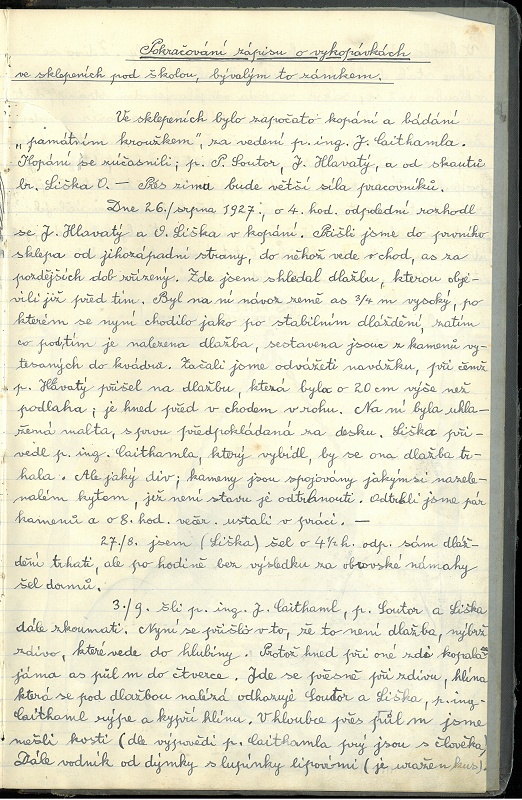 Pokračování zápisu o vykopávkách
ve sklepeních pod školou, bývalým to zámkem.
Ve sklepeních bylo započato kopání a bádání
„památním kroužkem", za vedení p. ing. J. Caithamla.
Kopání se zúčasnili; p. P. Soutor, J. Hlavatý, a od skautů
br. Liška O. — Přes zimu bude větší síla pracovníků.
Dne 26./srpna 1927; o 4. hod. odpolední rozhodl
se J. Hlavatý a O. Liška v kopání. Přišli jsme do prvního
sklepa od jihozápadní strany, do něhož vede vchod, as za
pozdějších dob zřízený. Zde jsem shledal dlažbu, kterou obje-
vili již před tím. Byl na ní návoz země as 3/4 m vysoký, po
kterém se nyní chodilo jako po stabilním dláždění, zatím
co pod tím je nalezena dlažba, sestavena jsouc z kamenů vy-
tesaných do kvádrů. Začali jsme odvážeti navážku, při čemž
p. Hlavatý přišel na dlažbu, která byla o 20 cm výše než
podlaha; je hned před vchodem v rohu. Na ní byla uhla-
zená malta, zprvu předpokládaná za desku. Liška při-
vedl p. ing. Caithamla, který vybídl, by se ona dlažba tr-
hala. Ale jaký div; kameny jsou spojovány jakýmsi nazele-
nalém kytem, jež není stavu je odtrhnouti. Odtrhli jsme pár
kamenů a o 8. hod. večr. ustali v práci. —
27./8. jsem (Liška) šel o 4½ h. odp. sám dlaž-
dění trhati, ale po hodině bez výsledku za obrovské námahy
šel domů.
3./9. šli p. ing. J. Caithaml, p. Soutor a Liška
dále zkoumati. Nyní se přišlo v to, že to není dlažba, nýbrž
zdivo, které vede do hlubiny. Protož hned při oné zdi kopala se
jáma as půl m do čtverce. Jde se přesně při zdivu, hlína
která se pod dlažbou nalézá odhazuje Soutor a Liška, p. ing.
Caithaml rýpe a kypří hlínu. V hloubce přes půl m jsme
našli kosti (dle výpovědi p. Caithamla prý jsou s člověka)
Dále vodník od dýmky s lupínky lipovými (je uražen kus).